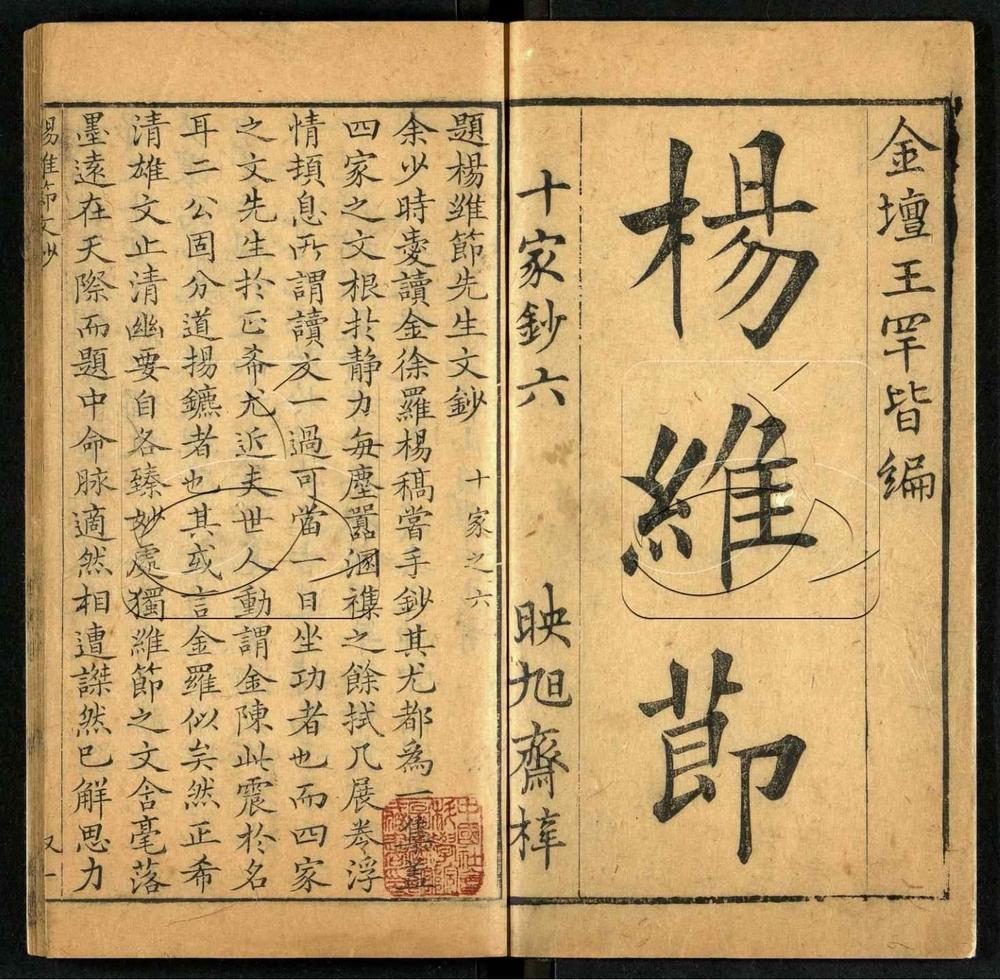 金壇王罕皆編
楊維節
十家鈔六 映旭齋梓
題楊維節先生文鈔 十家之六
余少時愛讀金徐羅楊稿嘗手鈔其尤都為一集蓋
四家之文根於静力每塵囂溷襍之餘拭几展卷浮
情頓息所謂讀文一過可當一日坐功者也而四家
之文先生於正希尤近夫世人動謂金陳此震於名
耳二公固分道揚鑣者也其或言金羅似矣然正希
清雄文止清幽要自各臻妙處獨維節之文含毫落
墨遠在天際而題中命脉適然相遭謋然已解思力
楊維節文鈔